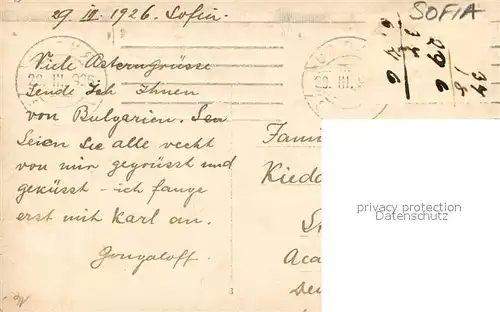 29 III. 1926. Sofia.
SOFIA
28. III. 926
28. III. 9
Viele Osterngrüsse
sende Ich Ihnen
von Bulgarien.
Seien Sie alle recht
von mir gegrüsst und
geküsst – ich fange
erst mit Karl an.
Fami
Kieda
Aca
privacy protection
Datenschutz
8